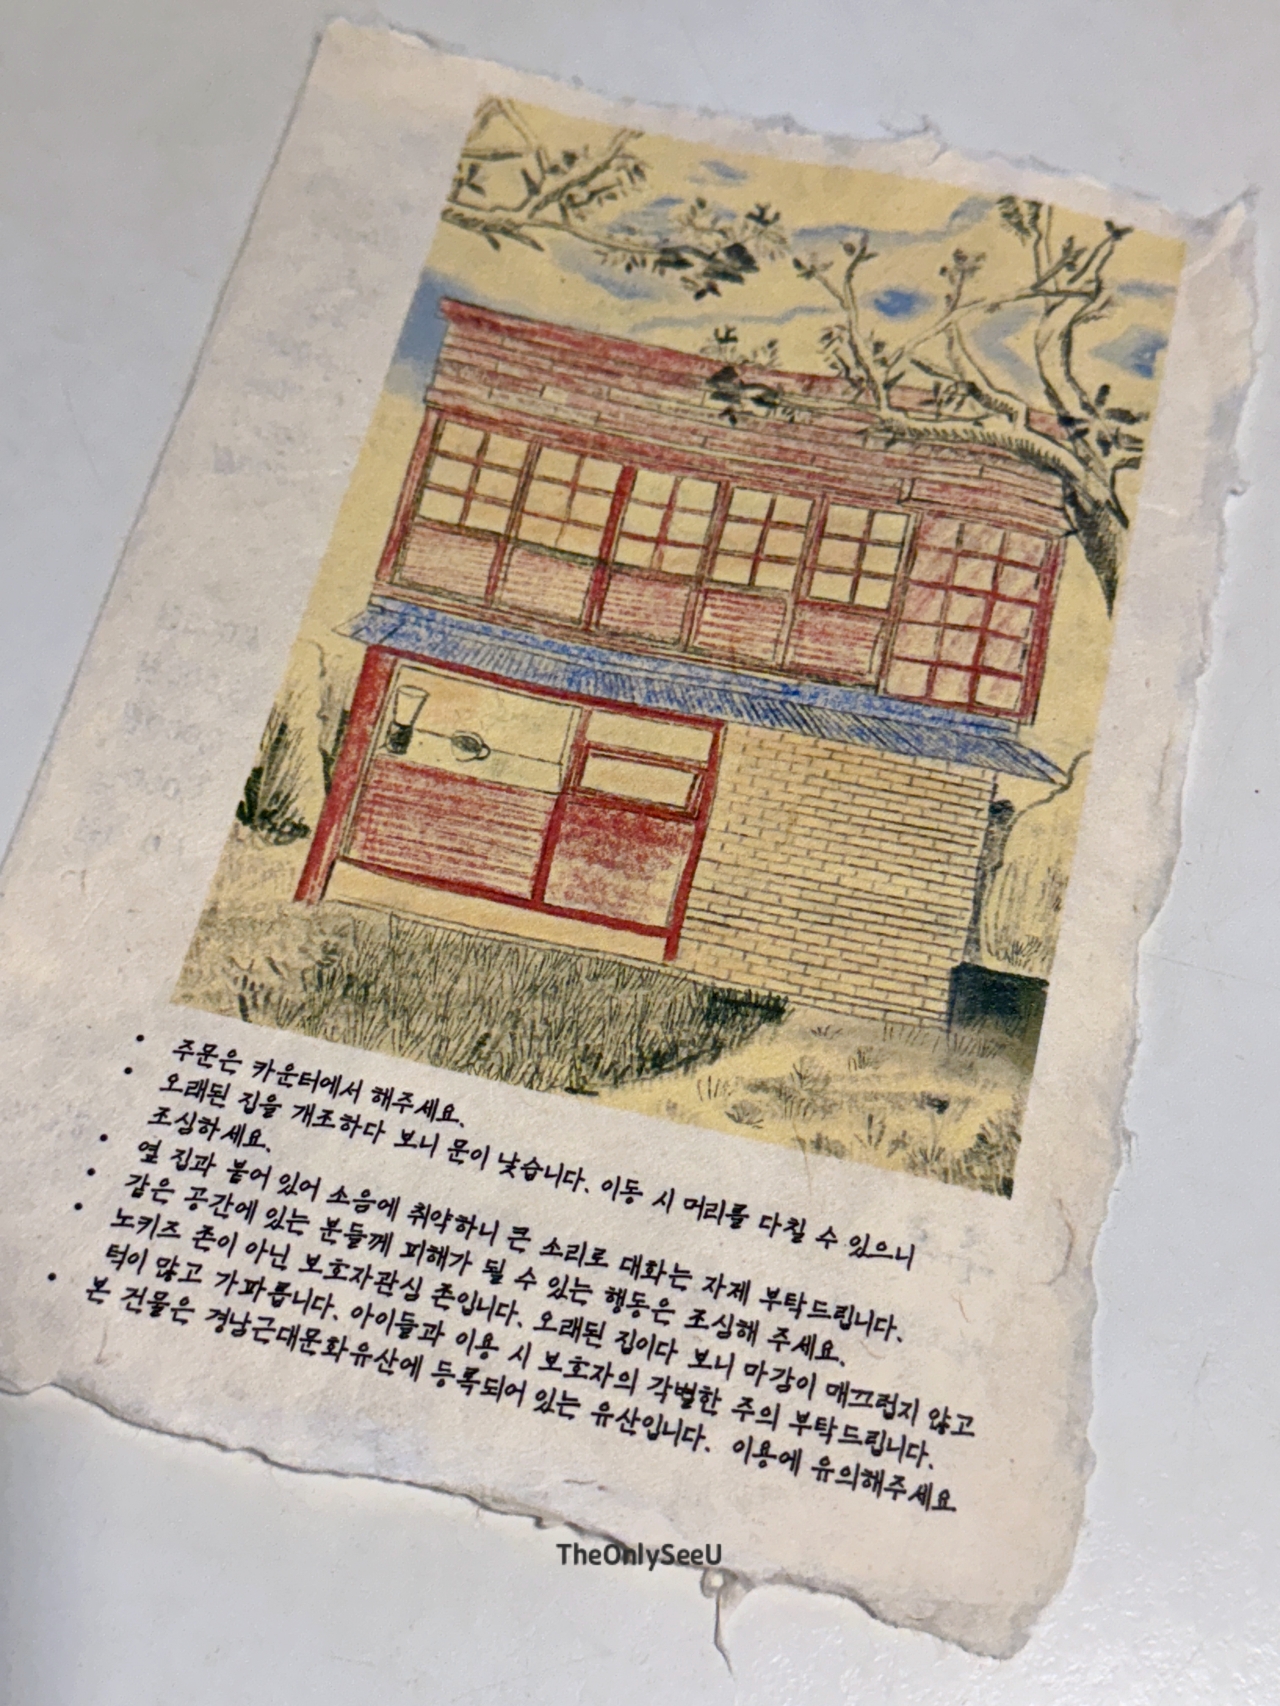 • 주문은 카운터에서 해주세요.
• 오래된 집을 개조하다 보니 문이 낮습니다. 이동 시 머리를 다칠 수 있으니
조심하세요.
• 옆 집과 붙어 있어 소음에 취약하니 큰 소리로 대화는 자제 부탁드립니다.
• 같은 공간에 있는 분들께 피해가 될 수 있는 행동은 조심해 주세요.
• 노키즈 존이 아닌 보호자관심 존입니다. 오래된 집이다 보니 마감이 매끄럽지 않고
턱이 많고 가파릅니다. 아이들과 이용 시 보호자의 각별한 주의 부탁드립니다.
• 본 건물은 경남근대문화유산에 등록되어 있는 유산입니다. 이용에 유의해주세요
TheOnlySeeU